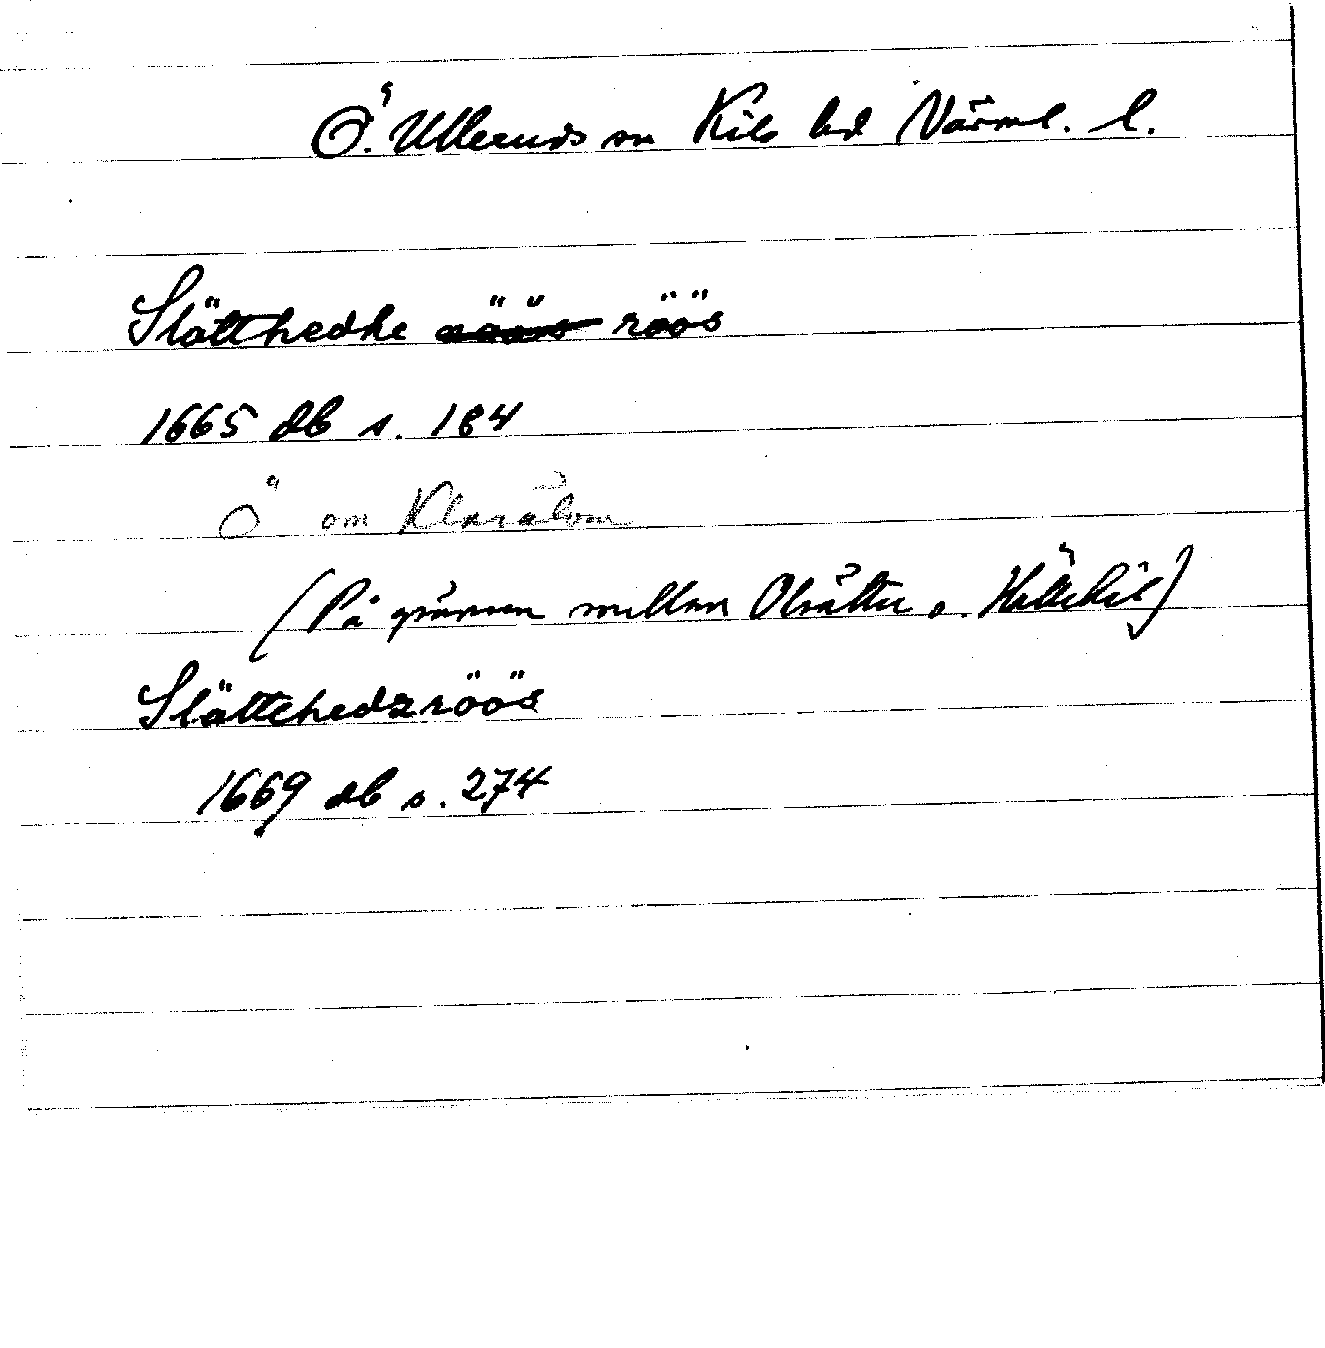 Ö. Ulleruds sn Kils hd Värml. l.
Slätthedhe röös
1665 db s. 184
Ö om Klarälven
(På gränsen mellan Olsätter o. Hällekil)
Slättehedzröös
1669 db s. 274